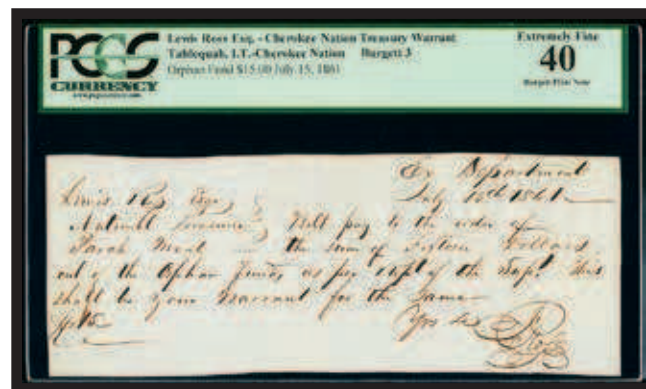 PCGS
CURRENCY
Lewis Ross Esq. - Cherokee Nation Treasury Warrant
Tahlequah, I.T.-Cherokee Nation Burgett 3
Orphan Fund $15.00 July 15, 1861
Extremely Fine
40
Ex Department
July 15th 1861
Lewis Ross Esqr
National Treasurer Will pay to the order of
Sarah the sum of Fifteen Dollars
out of the Orphan Funds as per of the Supt this
shall be your Warrant for the Same